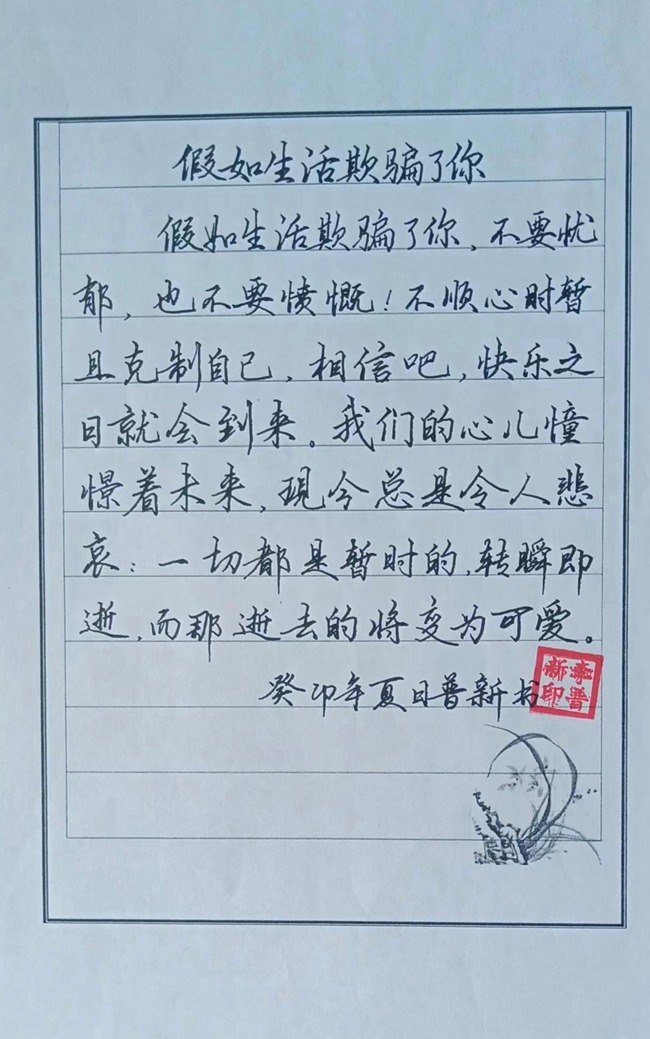 假如生活欺骗了你
假如生活欺骗了你，不要忧
郁，也不要愤慨！不顺心时暂
且克制自己，相信吧，快乐之
日就会到来。我们的心儿憧
憬着未来，现今总是令人悲
哀：一切都是暂时的，转瞬即
逝，而那逝去的将变为可爱。
癸卯年夏日普新书
李普新印